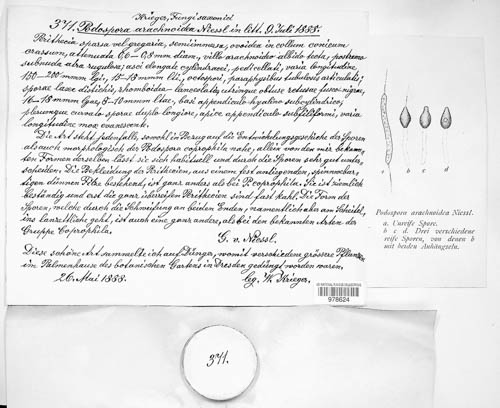 Krieger, Fungi saxonici
371. Podospora arachnoidea Niessl in litt. 9. Juli 1888.
Perithecia sparsa vel gregaria, semiimmersa, ovoidea in collum conicum
crassum, attenuata 0,6–0,8 mm diam, villo arachnoideo albido tecta, postremo
subnuda atra rugulosa; asci elongate cylindracei, pedicellati, varia longitudine,
150–200 mmm lgi, 15–18 mmm lti, octospori, paraphysibus tubulosis articulatis;
sporae laxe distichis, rhomboidea-lanceolatae, utrinque obtuse retusae fusco-nigrae,
16–18 mmm lgae, 8–10 mmm ltae, basi appendiculo hyalino subcylindrico,
plerumque curvato sporae duplo longiore, apice appendiculo subfiliformi, varia
longitudine mox evanescente.
Die Art steht jedenfalls, sowohl in Bezug auf die Entwickelungsgeschichte der Sporen
als auch morphologisch der Podospora coprophila nahe, allein von den mir bekann-
ten Formen derselben lässt sie sich habituell und durch die Sporen sehr gut unter-
scheiden. Die Bekleidung der Perithecien, aus einem fest anliegenden, spinnwebar-
tigen dünnen Filze bestehend, ist ganz anders als bei P. coprophila. Sie ist ziemlich
beständig und erst die ganz überreifen Perithecien sind fast kahl. Die Form der
Sporen, welche durch die Schrumpfung an beiden Enden, namentlich aber am Scheitel,
ins lanzettliche geht, ist auch eine ganz andere, als bei den bekannten Arten der
Gruppe Coprophila.
G. v. Niessl.
Diese schöne Art sammelte ich auf Dünger, womit verschiedene grössere Pflanzen
im Palmenhause des botanischen Gartens in Dresden gedüngt worden waren,
26. Mai 1888. leg. W. Krieger.
978624
a b c d
Podospora arachnoidea Niessl.
a. Unreife Spore.
b c d. Drei verschiedene
reife Sporen, von denen b
mit beiden Anhängseln.
371.